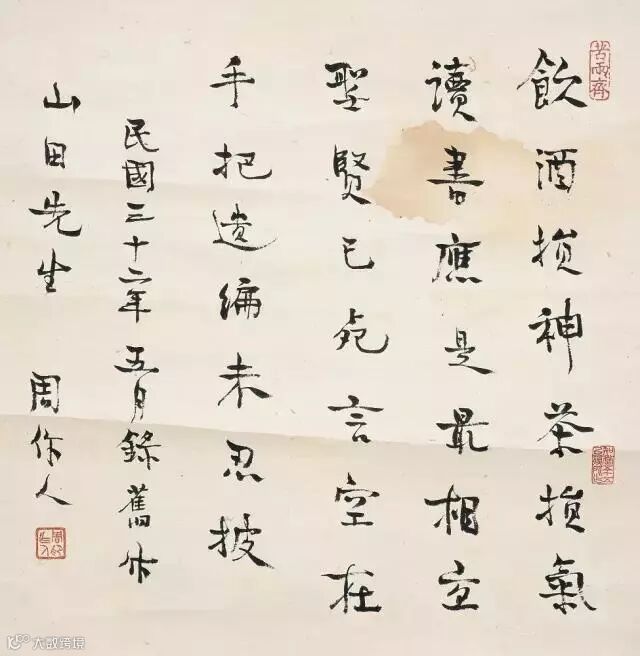 飲酒損神茶損氣
讀書應是最相宜
聖賢已死言空在
手把遺編未忍披
民國三十二年五月錄舊作
山田先生 周作人
苦雨齋
周作人
大數跨境